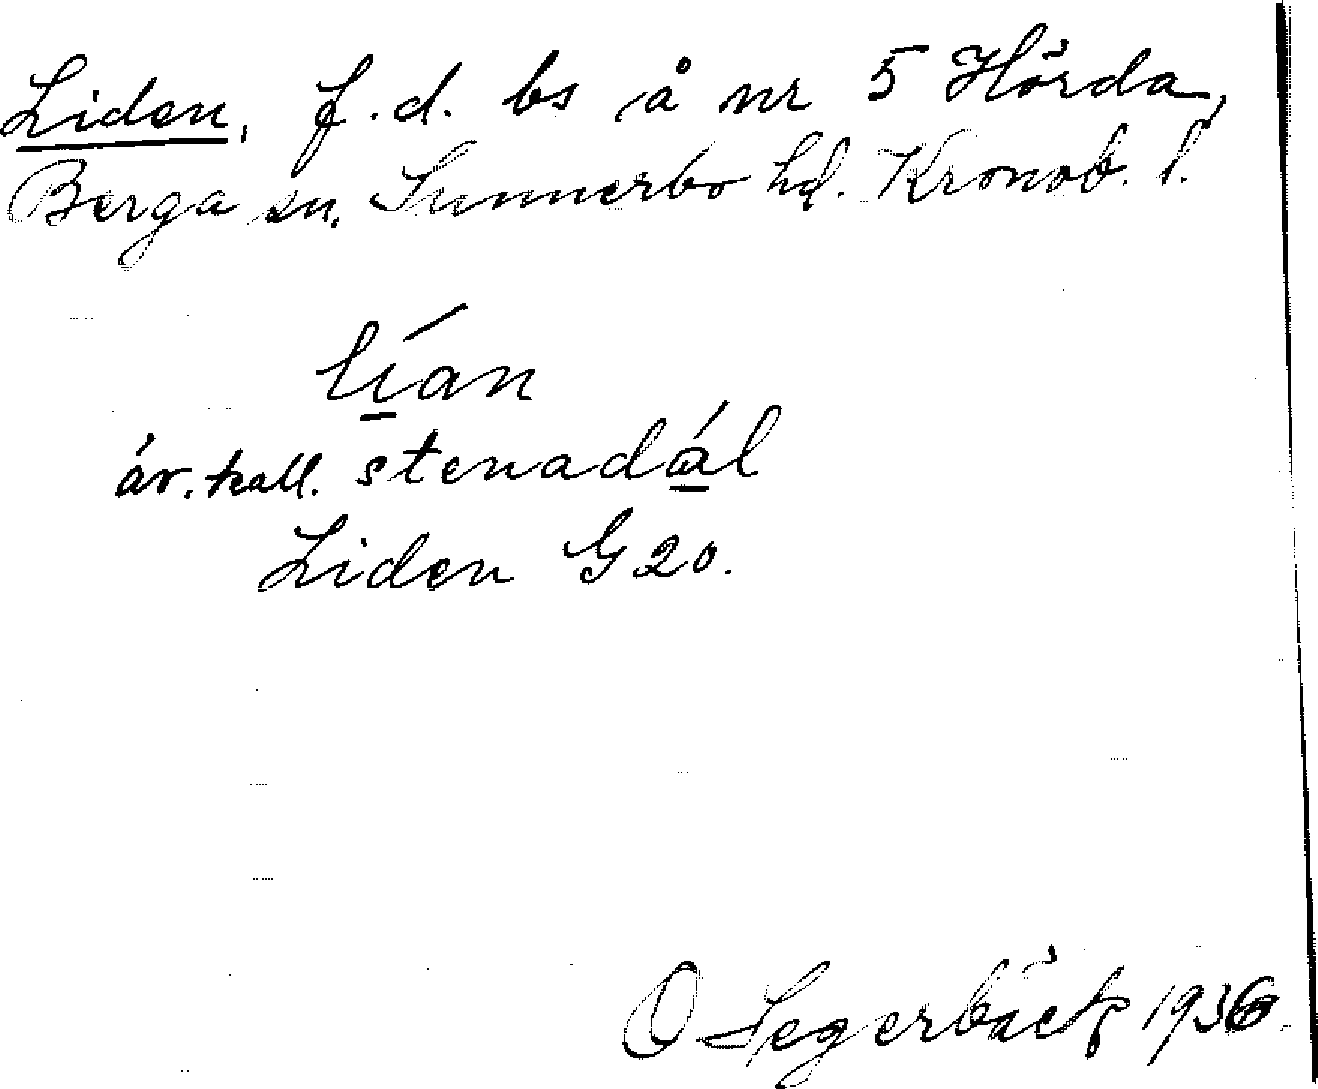 Liden, f.d. bs å nr 5 Hörda,
Berga sn. Sunnerbo hd. Kronob. l.
lían
äv. kall. stenadál
Liden G 20.
O Segerbäck 1936